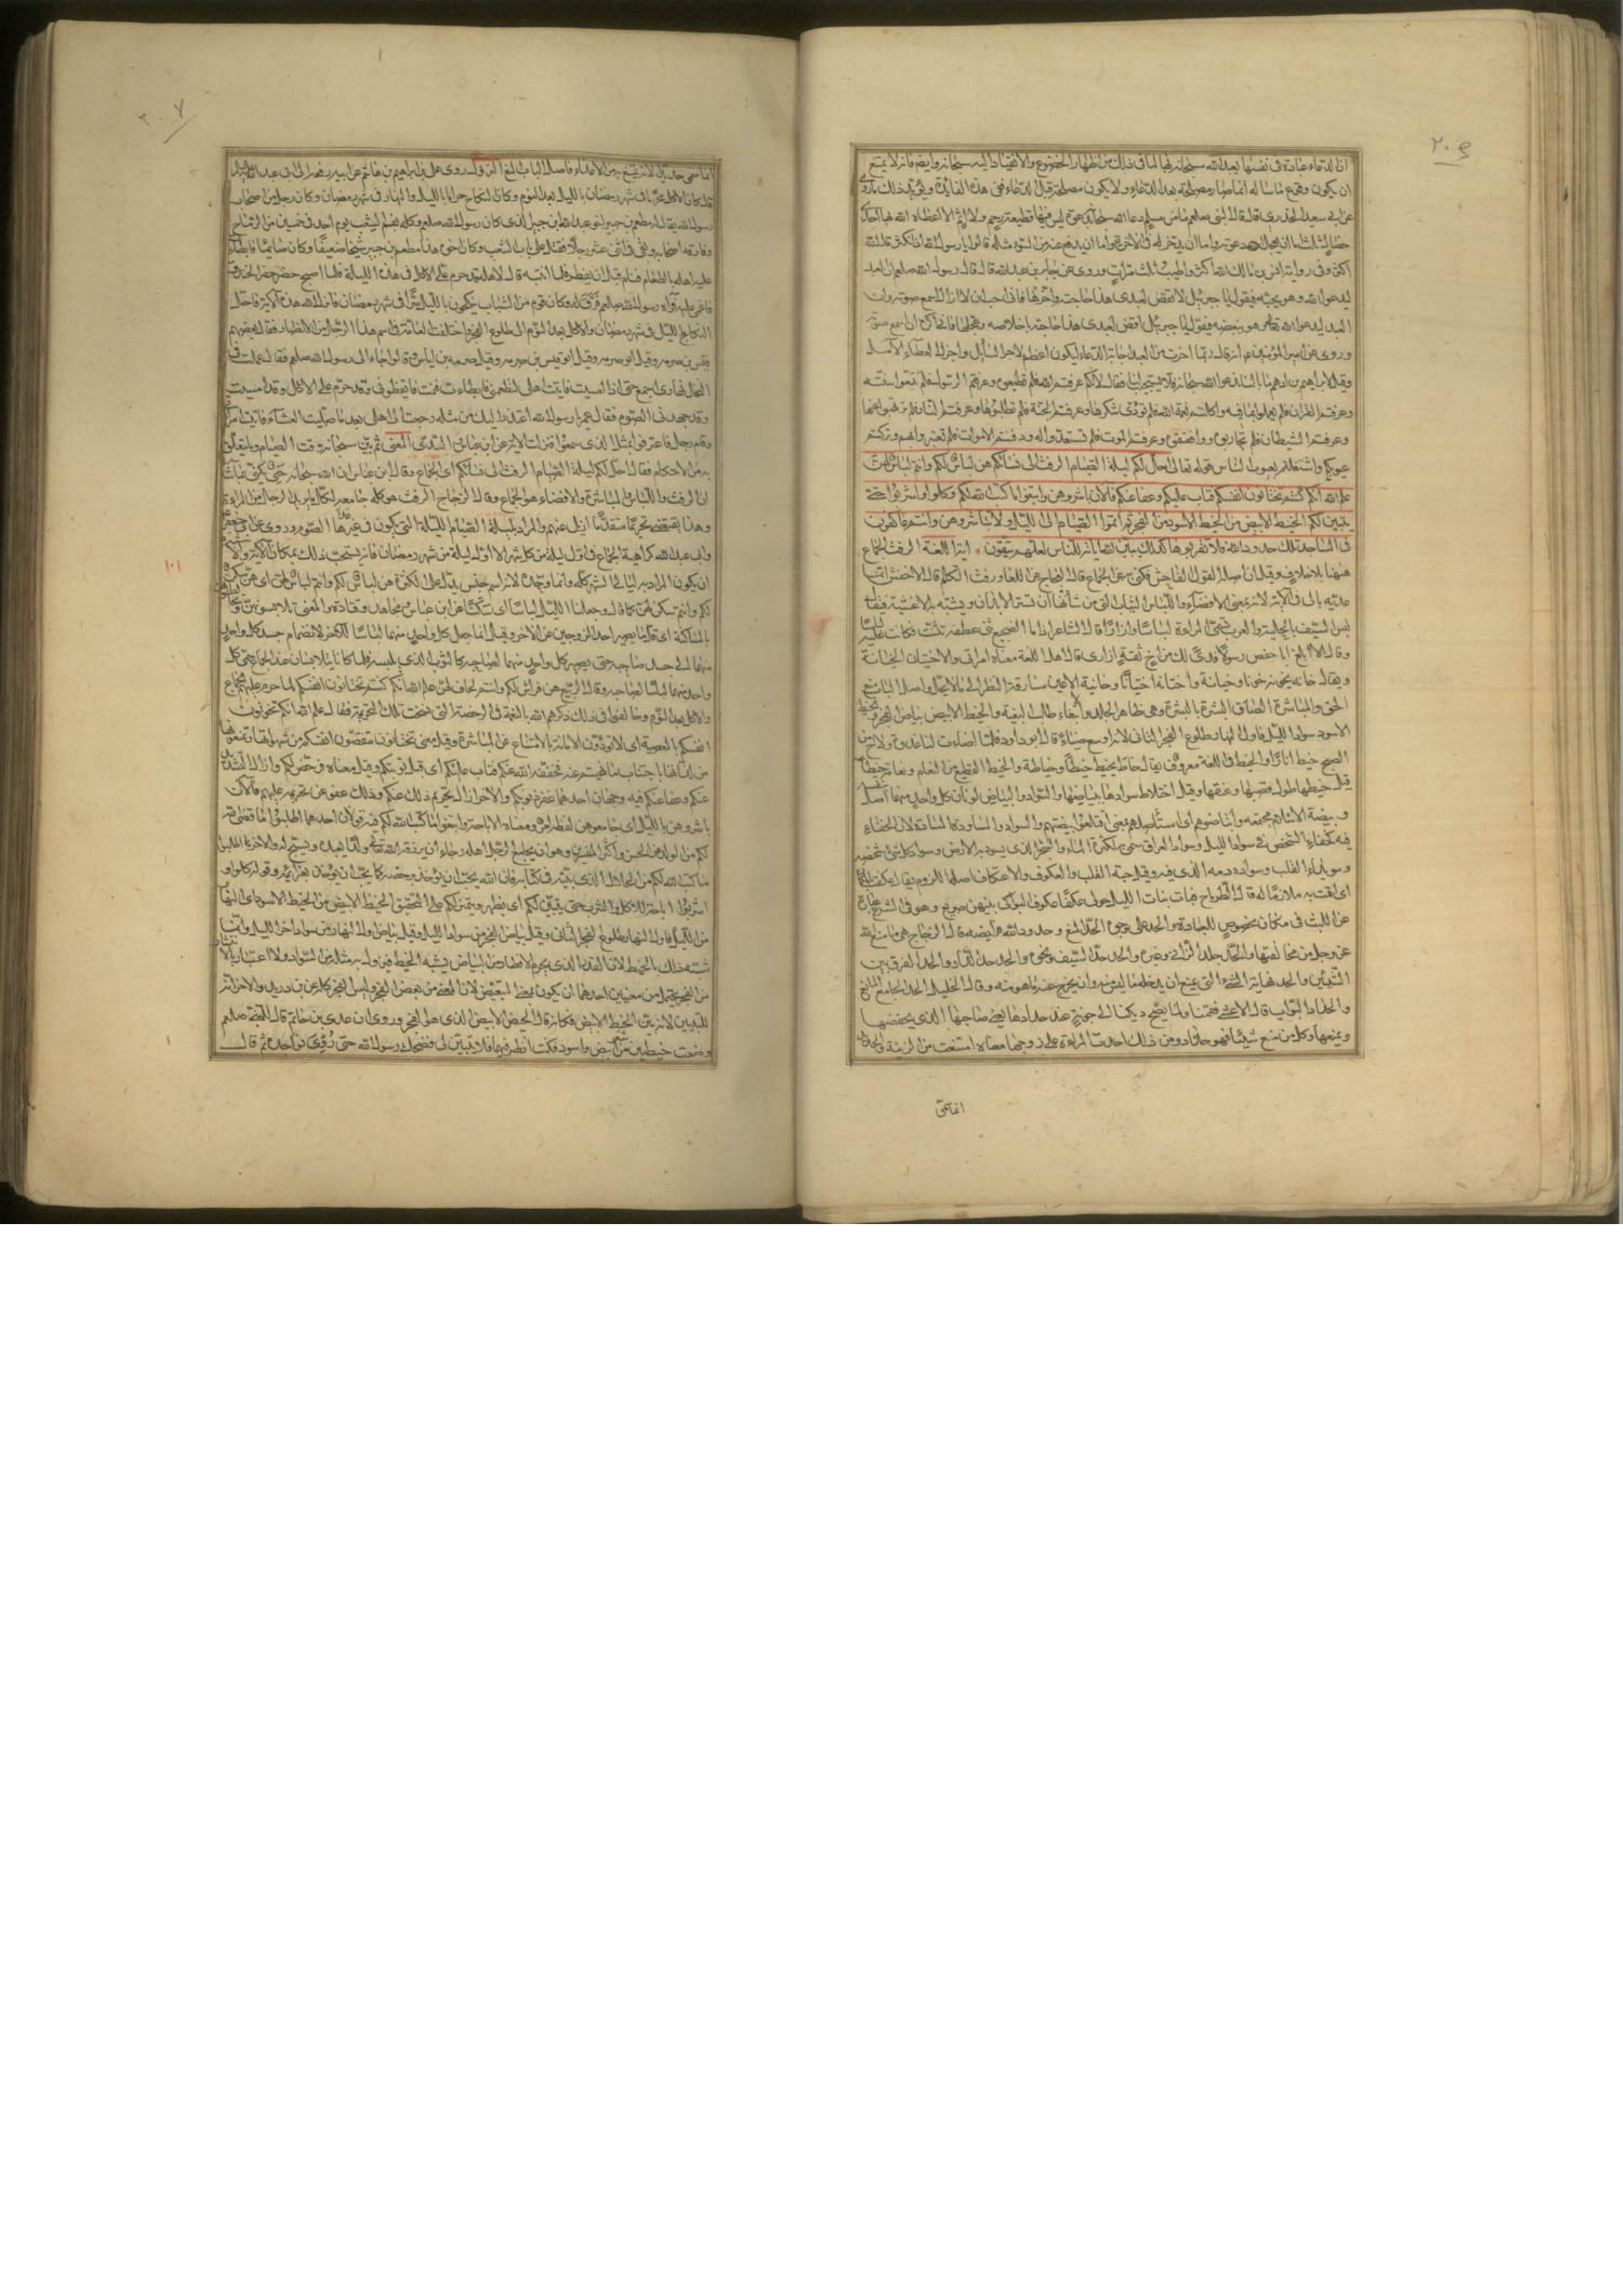 ان الدعاء عبادة فى نفسها يعبد الله سبحانه بها لما فى ذلك من اظهار الخضوع والانقياد اليه سبحانه وايضا فانه لا يمتنع
ان يكون وقوع ما ساله انما صار مصلحة بعد الدعاء ولا يكون مصلحة قبل الدعاء ففى هذه الفايدة ويؤيد ذلك ما روى
عن ابى سعيد الخدرى قال قال النبى صلعم ما من مسلم دعا الله سبحانه دعوة ليس فيها قطيعة رحم ولا اثم الا اعطاه الله بها احدى
خصال ثلث اما ان يعجل دعوته واما ان يدخر له فى الاخرة واما ان يدفع عنه من السوء مثله قالوا يا رسول الله اذا نكثر قال الله
اكثر وفى رواية انس بن مالك الله اكثر واطيب ثلث مرات وروى عن جابر بن عبد الله قال قال رسول الله صلعم ان العبد
ليدعو الله وهو يحبه فيقول يا جبرئيل لا تقض لعبدى هذا حاجته واخرها فانى احب ان لا ازال اسمع صوته وان
العبد ليدعو الله وهو يبغضه فيقول يا جبرئيل اقض لعبدى هذا حاجته باخلاصه وعجلها فانى اكره ان اسمع صوته
وروى عن امير المؤمنين انه قال ربما اخرت من العبد اجابة الدعاء ليكون اعظم لاجر السايل واجزل لعطاء الآمل
وقيل لابراهيم بن ادهم ما بالنا ندعو الله سبحانه فلا يستجيب لنا فقال لانكم عرفتم الله فلم تطيعوه وعرفتم الرسول فلم تتبعوا سنته
وعرفتم القران فلم تعملوا بما فيه واكلتم نعمة الله فلم تؤدوا شكرها وعرفتم الجنة فلم تطلبوها وعرفتم النار فلم تهربوا منها
وعرفتم الشيطان فلم تحاربوه ووافقتموه وعرفتم الموت فلم تستعدوا له ودفنتم الاموات فلم تعتبروا بهم وتركتم
عيوبكم واشتغلتم بعيوب الناس قوله تعالى احل لكم ليلة الصيام الرفث الى نسائكم هن لباس لكم وانتم لباس لهن
علم الله انكم كنتم تختانون انفسكم فتاب عليكم وعفا عنكم فالان باشروهن وابتغوا ما كتب الله لكم وكلوا واشربوا حتى
يتبين لكم الخيط الابيض من الخيط الاسود من الفجر ثم اتموا الصيام الى الليل ولا تباشروهن وانتم عاكفون
فى المساجد تلك حدود الله فلا تقربوها كذلك يبين الله اياته للناس لعلهم يتقون اية اللغة الرفث الجماع
ههنا بلا خلاف وقيل ان اصله القول الفاحش فكنى به عن الجماع قال العجاج عن اللغا ورفث التكلم قال الاخفش انما
عديه بالى فى الاية لانه بمعنى الافضاء واللباس الثياب التى من شأنها ان تستر الابدان ويشبه بها الاغشية فيقال
لبس السيف بالحلية والعرب تسمى المراة لباسا وازارا قال الشاعر اذا ما الضجيع ثنى عطفه تثنت فكانت عليه لباسا
وقال الا ابلغ ابا حفص رسولا فدى لك من اخى ثقة ازارى قال اهل اللغة معناه امراتى والاختيان الخيانة
ويقال خانه يخونه خونا وخيانة واختانه اختيانا وخائنة الاعين مسارقة النظر الى ما لا يحل واصل الباب منع
الحق والمباشرة الصاق البشرة بالبشرة وهى ظاهر الجلد والابتغاء طلب البغية والخيط الابيض بياض الفجر والخيط
الاسود سواد الليل فاول النهار طلوع الفجر الثانى لانه اوسع ضياء قال ابو داود فلما اضاءت لنا غدوة ولاح من
الصبح خيط انارا والخيط فى اللغة معروف يقال خاطه يخيطه خيطا وخياطة والخيط القطيع من النعام ونعامة خيطاء
قيل خيطها طول قصبها وعنقها وقيل اختلاط سوادها ببياضها والسواد والبياض لونان كل واحد منهما اصل
وبيضة الاسلام مجتمعه وابتاضوهم اى استأصلوهم بمعنى اقتلعوا بيضتهم والسواد والمساودة المسارة لان الخفاء
فيه كخفاء الشخص فى سواد الليل وسواد العراق سمى به لكثرة الماء والشجر الذى يسود به الارض وسواد كل شئ شخصه
وسويداء القلب وسواده دمه الذى فيه وقيل حبة القلب والعكوف والاعتكاف اصله اللزوم يقال عكفت بالمكان
اى اقمت به ملازما له قال الطرماح فبات بنات الليل حولى عكفا عكوف البواكى بينهن صريع وهو فى الشرع عبارة
عن اللبث فى مكان مخصوص للعبادة والحد على وجوه الحد المنع وحدود الله فرايضه قال الزجاج هى ما منع الله
عز وجل من مخالفتها والحد جلد الزانى وغيره والحد حد السيف ونحوه والحد حد الدار والحد الفرق بين
الشيئين والحد نهاية الشئ التى تمنع ان يدخله ما ليس منه وان يخرج عنه ما هو منه وقال الخليل الحد الجامع المانع
والحداد البواب قال الاعشى فقمنا ولما يصح ديكنا الى جونة عند حدادها يعنى صاحبها الذى يحفظها
ويمنعها وكل من منع شيئا فهو حداد ومن ذلك احدت المراة على زوجها معناه امتنعت من الزينة والحديد
انما سمى
انما سمى حديدا لانه يمتنع به من الاعداء فاصل الباب المنع النزول روى على بن ابراهيم بن هاشم عن ابيه رفعه الى ابى عبد الله
قال كان الاكل محرما فى شهر رمضان بالليل بعد النوم وكان النكاح حراما بالليل والنهار فى شهر رمضان وكان رجل من اصحاب
رسول الله يقال له مطعم بن جبير اخو عبد الله بن جبير الذى كان رسول الله صلعم وكله بفم الشعب يوم احد فى خمسين من الرماة
وفارقه اصحابه وبقى فى اثنى عشر رجلا فقتل على باب الشعب وكان اخوه هذا مطعم بن جبير شيخا ضعيفا وكان صائما فابطأت
عليه اهله بالطعام فنام قبل ان يفطر فلما انتبه قال لاهله قد حرم على الاكل فى هذه الليلة فلما اصبح حضر حفر الخندق
فاغمى عليه فرآه رسول الله صلعم فرق له وكان قوم من الشباب ينكحون بالليل سرا فى شهر رمضان فانزل الله هذه الاية فاحل
النكاح بالليل فى شهر رمضان والاكل بعد النوم الى طلوع الفجر واختلفت العامة فى اسم هذا الرجل من الانصار فقال بعضهم
قيس بن صرمة وقيل ابو صرمة وقيل ابو قيس بن صرمة وقيل صرمة بن اياس قالوا جاء الى رسول الله صلعم فقال عملت فى
النخل نهارى اجمع حتى اذا امسيت فاتيت اهلى لتطعمنى فابطأت فنمت فايقظونى وقد حرم على الاكل وقد امسيت
وقد جهدنى الصوم فقال عمر يا رسول الله اعتذر اليك من مثله رجعت الى اهلى بعد ما صليت العشاء فاتيت امراتى
وقام رجال فاعترفوا بمثل الذى سمعوا فنزلت الاية عن ابن عباس والسدى المعنى ثم بين سبحانه وقت الصيام وما يتعلق
به من الاحكام فقال احل لكم ليلة الصيام الرفث الى نسائكم اى الجماع وقال ابن عباس ان الله سبحانه حيى يكنى بما شاء
ان الرفث واللباس والمباشرة والافضاء هو الجماع وقال الزجاج الرفث هو كلمة جامعة لكل ما يريد الرجال من المراة
وهذا يقتضى تحريما متقدما ازيل عنهم والمراد بليلة الصيام الليلة التى يكون فى غدها الصوم وروى عن ابى جعفر
وابى عبد الله كراهية الجماع فى اول ليلة من كل شهر الا اول ليلة من شهر رمضان فانه يستحب ذلك لمكان الاية والاشبه
ان يكون المراد به ليالى الشهر كله وانما وحده لانه اسم جنس يدل على الكثرة هن لباس لكم وانتم لباس لهن اى هن سكن
لكم وانتم سكن لهن كما قال وجعلنا الليل لباسا اى سكنا عن ابن عباس ومجاهد وقتادة والمعنى تلابسونهن وتخالطونهن
بالمساكنة اى قل ما يصبر احد الزوجين عن الاخر وقيل انما جعل كل واحد منهما لباسا للاخر لانضمام جسد كل واحد
منهما الى جسد صاحبه حتى يصير كل واحد منهما لصاحبه كالثوب الذى يلبسه فلما كانا يتلابسان عند الجماع سمى كل
واحد منهما لباسا لصاحبه وقال الربيع هن فراش لكم وانتم لحاف لهن علم الله انكم كنتم تختانون انفسكم لما حرم عليهم الجماع
والاكل بعد النوم وخالفوا فى ذلك ذكرهم الله بالنعمة فى الرخصة التى نسخت تلك التحريمة فقال علم الله انكم تخونون
انفسكم بالمعصية اى لا تؤدون الامانة بالامتناع عن المباشرة وقيل معنى تختانون تنقصون انفسكم من شهواتها وتمنعونها
من لذاتها باجتناب ما نهيتم عنه فخففه الله عنكم فتاب عليكم اى قبل توبتكم وقيل معناه فرخص لكم وازال التشديد
عنكم وعفا عنكم فيه وجهان احدهما غفر ذنوبكم والاخر ازال تحريم ذلك عنكم وذلك عفو عن تحريمه عليهم فالان
باشروهن بالليل اى جامعوهن لفظه امر ومعناه الاباحة وابتغوا ما كتب الله لكم فيه قولان احدهما اطلبوا ما قضى الله
لكم من الولد عن الحسن واكثر المفسرين وهو ان يجامع الرجل اهله رجاء ان يرزقه الله ولدا يعبده ويسبح له والاخر اطلبوا
ما كتب الله لكم من الحلال الذى بينه فى كتابه فان الله يحب ان يؤخذ برخصه كما يحب ان يؤخذ بعزايمه وقوله كلوا و
اشربوا اباحة للاكل والشرب حتى يتبين لكم اى يظهر ويتميز لكم على التحقيق الخيط الابيض من الخيط الاسود اى النهار
من الليل فاول النهار طلوع الفجر الثانى وقيل بياض الفجر من سواد الليل وقيل بياض اول النهار من سواد اخر الليل وانما
شبه ذلك بالخيط لان القدر الذى يحرم الافطار من البياض يشبه الخيط فيزول به مثله من السواد ولا اعتبار بالانتشار
من الفجر يحتمل من معنيين احدهما ان يكون بمعنى التبعيض لان المعنى من بعض الفجر وليس الفجر كله عن ابن دريد والاخر انه
للتبيين لانه بين الخيط الابيض فكانه قال الخيط الابيض الذى هو الفجر وروى ان عدى بن حاتم قال للنبى صلعم
وضعت خيطين من شعر ابيض واسود فكنت انظر فيهما فلا يتبين لى فضحك رسول الله حتى رؤى نواجذه ثم قال